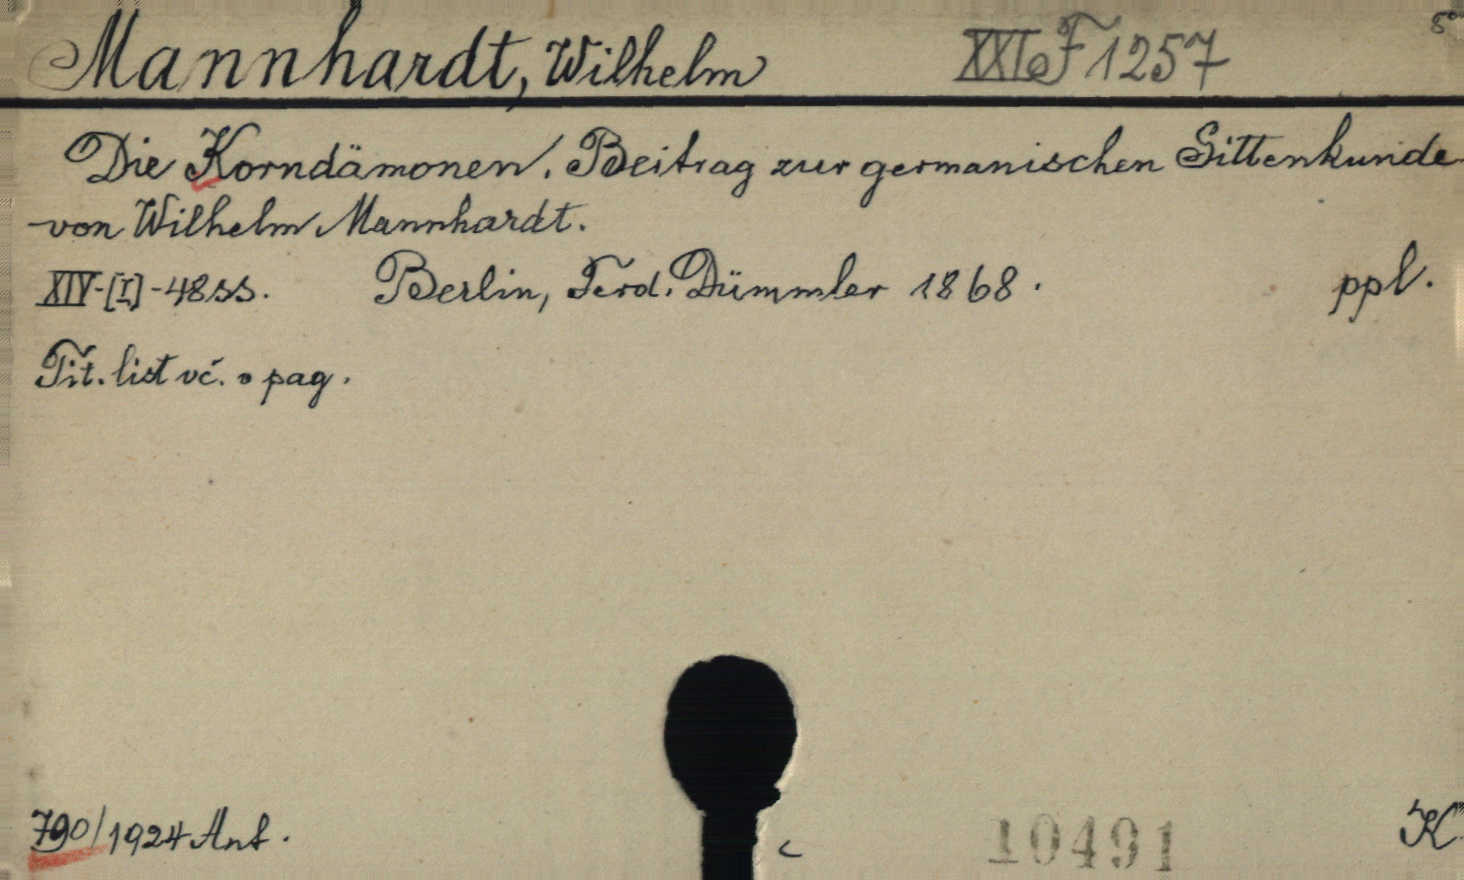 Mannhardt, Wilhelm XXI F 1257 8°
Die Korndämonen. Beitrag zur germanischen Sittenkunde
von Wilhelm Mannhardt.
XIV-[I]-48 ss. Berlin, Ferd. Dümmler 1868. ppl.
Tit. list vč. o pag.
790/1924 Ant. 10491 K